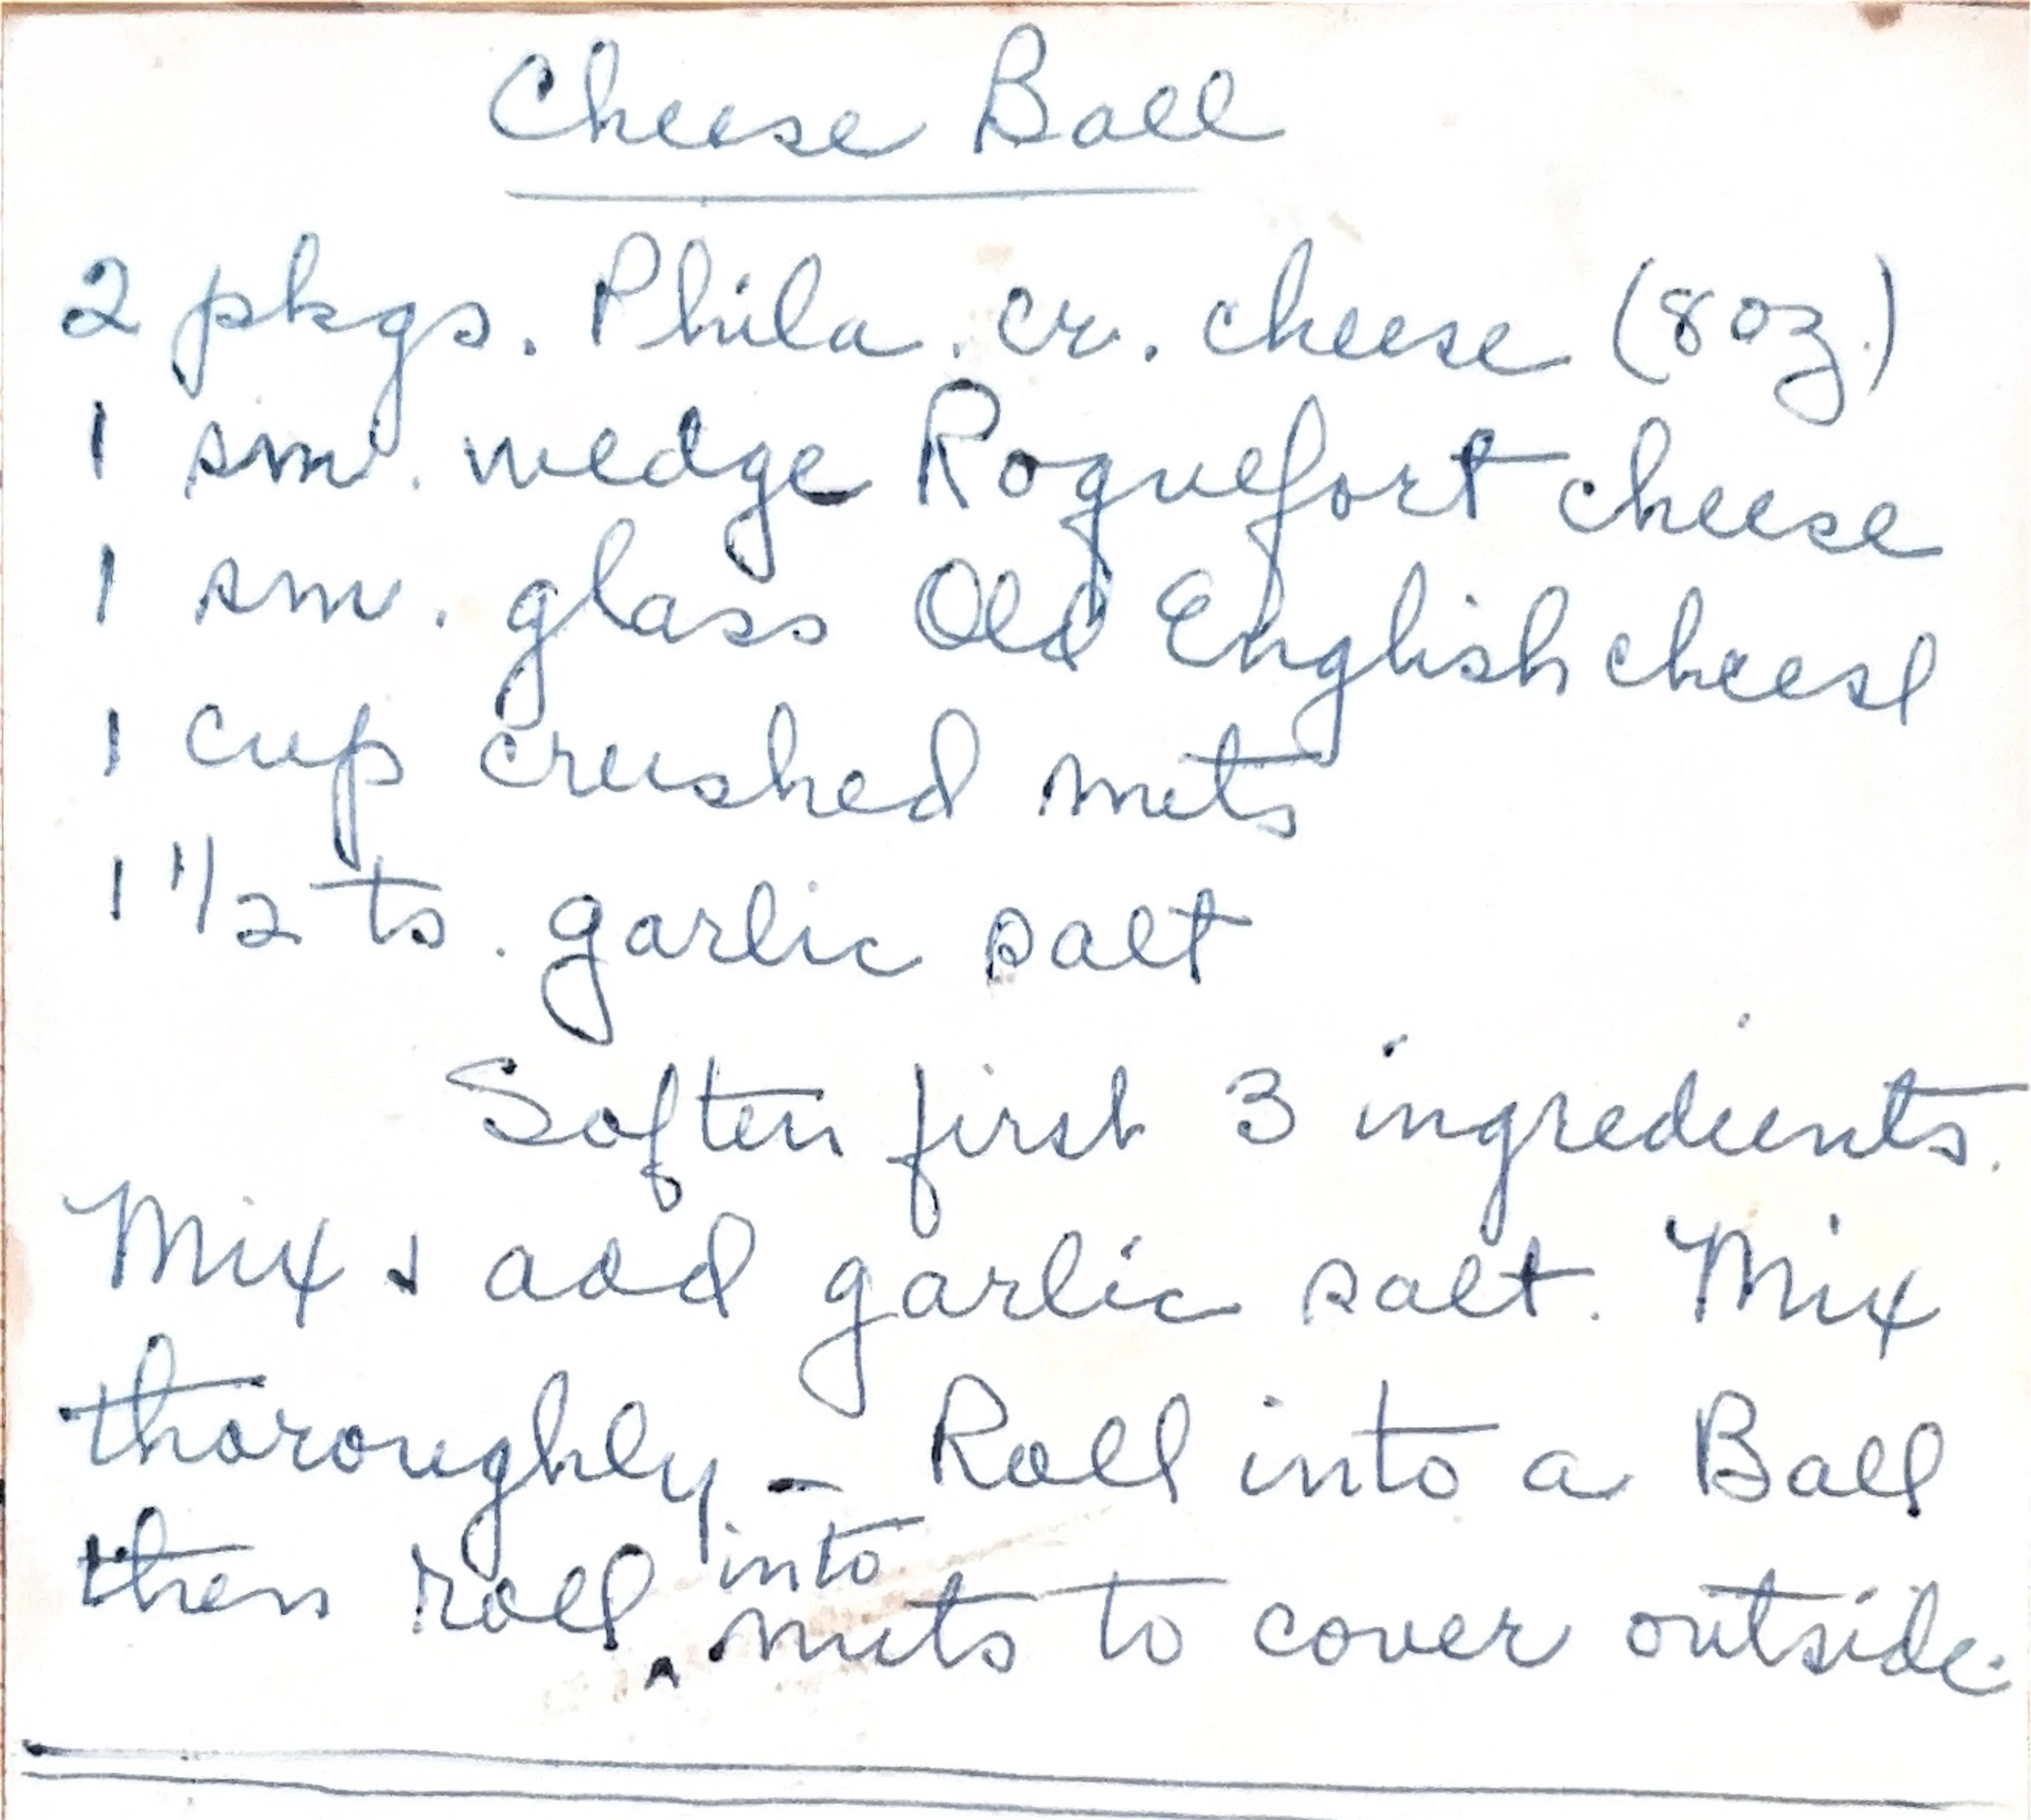 Cheese Ball
2 pkgs. Phila. cr. cheese (8 oz.)
1 sm. wedge Roquefort cheese
1 sm. glass Old English cheese
1 cup crushed nuts
1 1/2 ts. garlic salt
Soften first 3 ingredients.
Mix & add garlic salt. Mix
thoroughly - Roll into a Ball
then roll into nuts to cover outside.